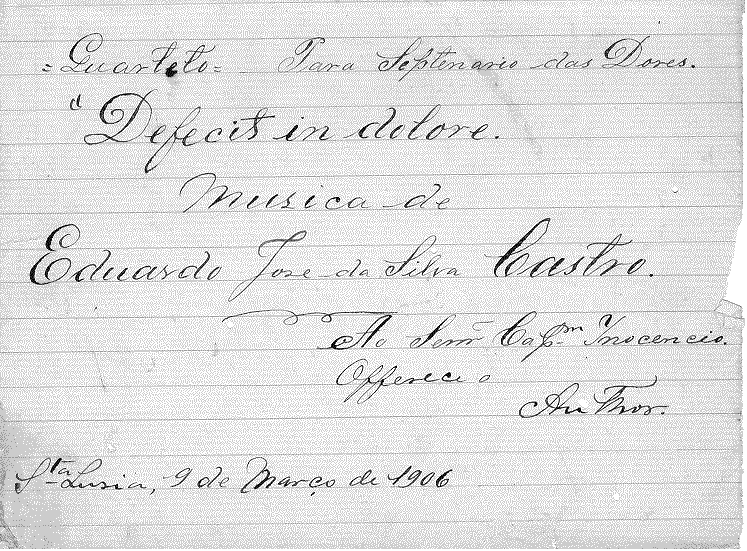 = Quarteto = Para Septenario das Dores.
"Defecit in dolore.
Musica de
Eduardo Jose da Silva Castro.
Ao Senr Capm Inocencio.
Offerece o
Author.
Sta Lusia, 9 de Março de 1906